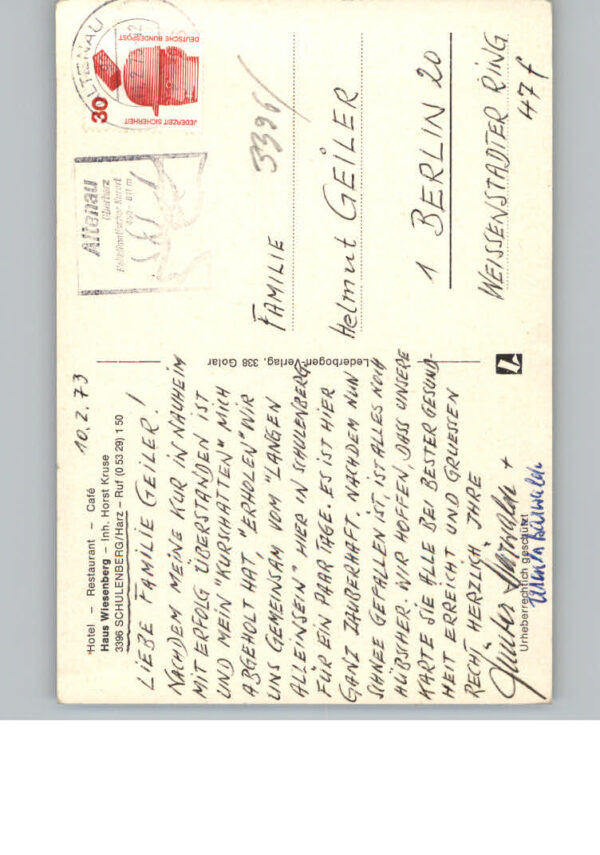 Hotel – Restaurant – Café
Haus Wiesenberg – Inh. Horst Kruse
3396 SCHULENBERG/Harz – Ruf (0 53 29) 1 50
10.2.73
LIEBE FAMILIE GEILER!
NACHDEM MEINE KUR IN NAUHEIM
MIT ERFOLG ÜBERSTANDEN IST
UND MEIN "KURSCHATTEN" MICH
ABGEHOLT HAT "ERHOLEN" WIR
UNS GEMEINSAM VOM "LANGEN
ALLEINSEIN" HIER IN SCHULENBERG
FÜR EIN PAAR TAGE. ES IST HIER
GANZ ZAUBERHAFT. NACHDEM NUN
SCHNEE GEFALLEN IST, IST ALLES NOCH
HÜBSCHER. WIR HOFFEN, DASS UNSERE
KARTE SIE ALLE BEI BESTER GESUND-
HEIT ERREICHT UND GRUESSEN
RECHT HERZLICH, IHRE
Urheberrechtlich geschützt
Lederbogen-Verlag, 338 Goslar
ALTENAU
30
DEUTSCHE BUNDESPOST
JEDERZEIT SICHERHEIT
Altenau
Oberharz
Heilklimatischer Kurort
3396/
FAMILIE
Helmut GEILER
1 BERLIN 20
WEISSENSTADTER RING
47 f